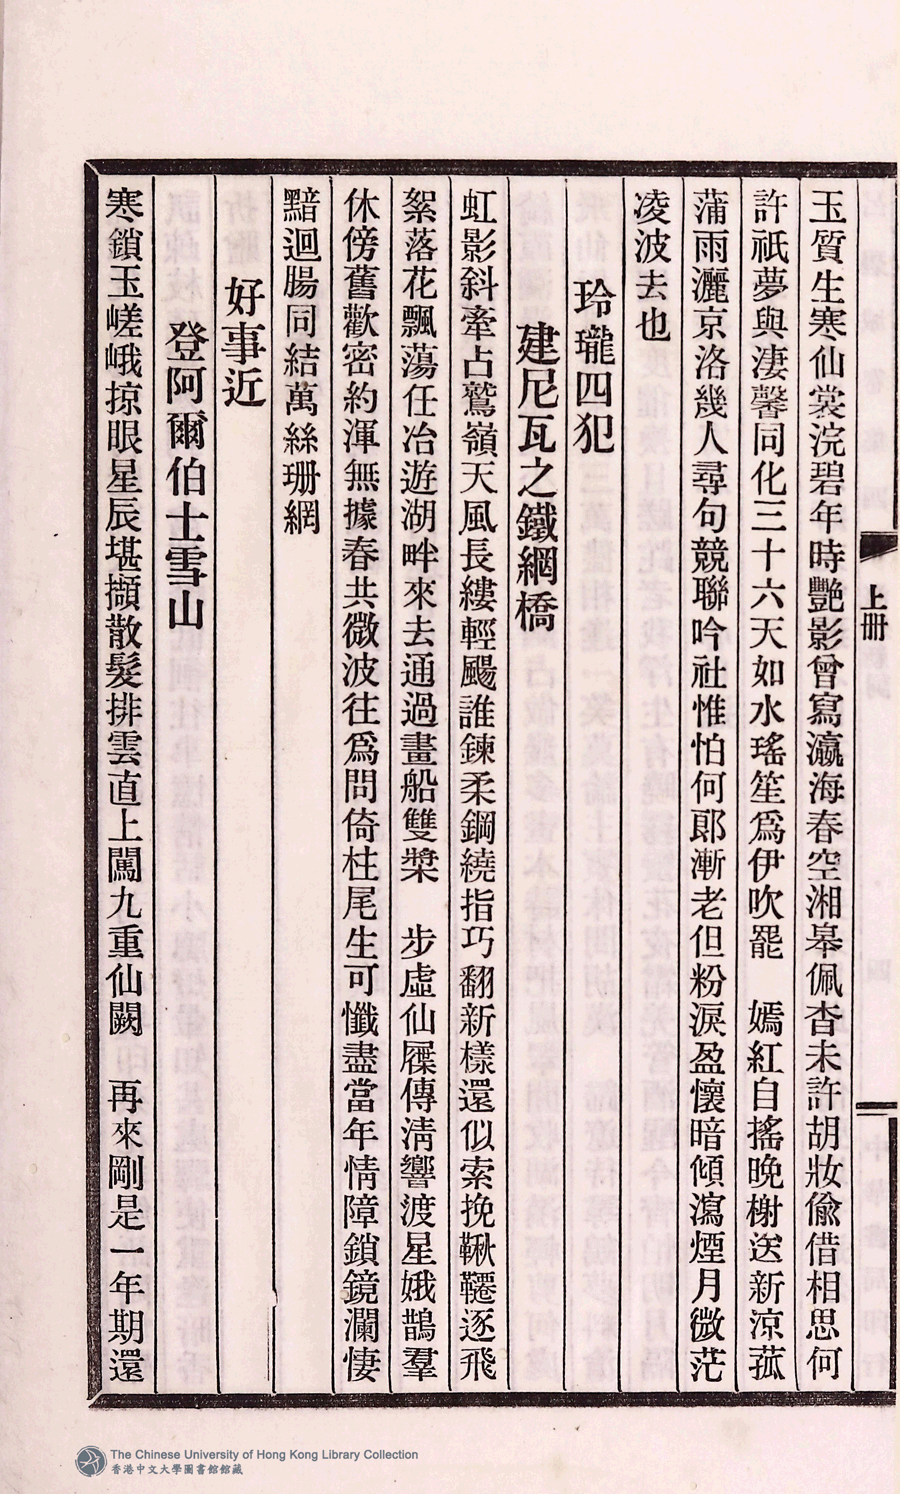 玉質生寒仙裳浣碧年時艷影曾寫瀛海春空湘皋佩杳未許胡妝偸借相思何
許祇夢與淒馨同化三十六天如水瑤笙爲伊吹罷　嫣紅自搖晚榭送新涼菰
蒲雨灑京洛幾人尋句競聯吟社惟怕何郎漸老但粉淚盈懷暗傾瀉煙月微茫
凌波去也
玲瓏四犯
建尼瓦之鐵網橋
虹影斜牽占鷲嶺天風長縷輕颺誰鍊柔鋼繞指巧翻新樣還似索挽鞦韆逐飛
絮落花飄蕩任冶遊湖畔來去通過畫船雙槳　步虛仙屧傳淸響渡星娥鵲羣
休傍舊歡密約渾無據春共微波往爲問倚柱尾生可懺盡當年情障鎖鏡瀾悽
黯迴腸同結萬絲珊網
好事近
登阿爾伯士雪山
寒鎖玉嵯峨掠眼星辰堪擷散髮排雲直上闖九重仙闕　再來剛是一年期還
上册
The Chinese University of Hong Kong Library Collection
香港中文大學圖書館館藏